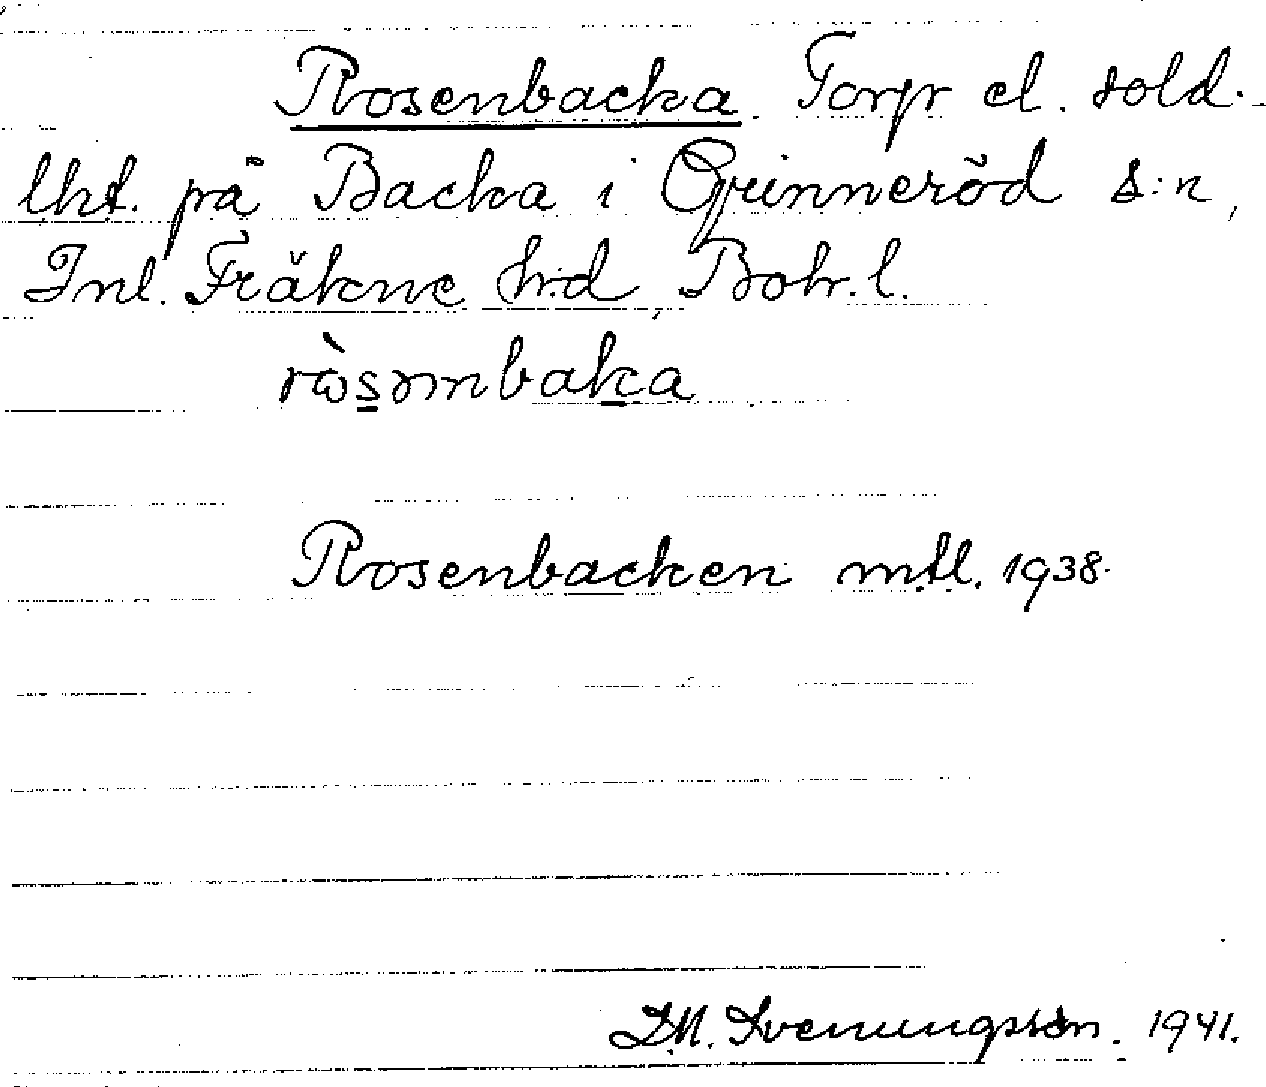 Rosenbacka. Torp el. sold.-
lht. på Backa i Grinneröd s:n,
Inl. Fräkne h:d, Boh. l.
rὼsəmbaka
Rosenbacken mtl. 1938.
D.M. Svenungsson. 1941.